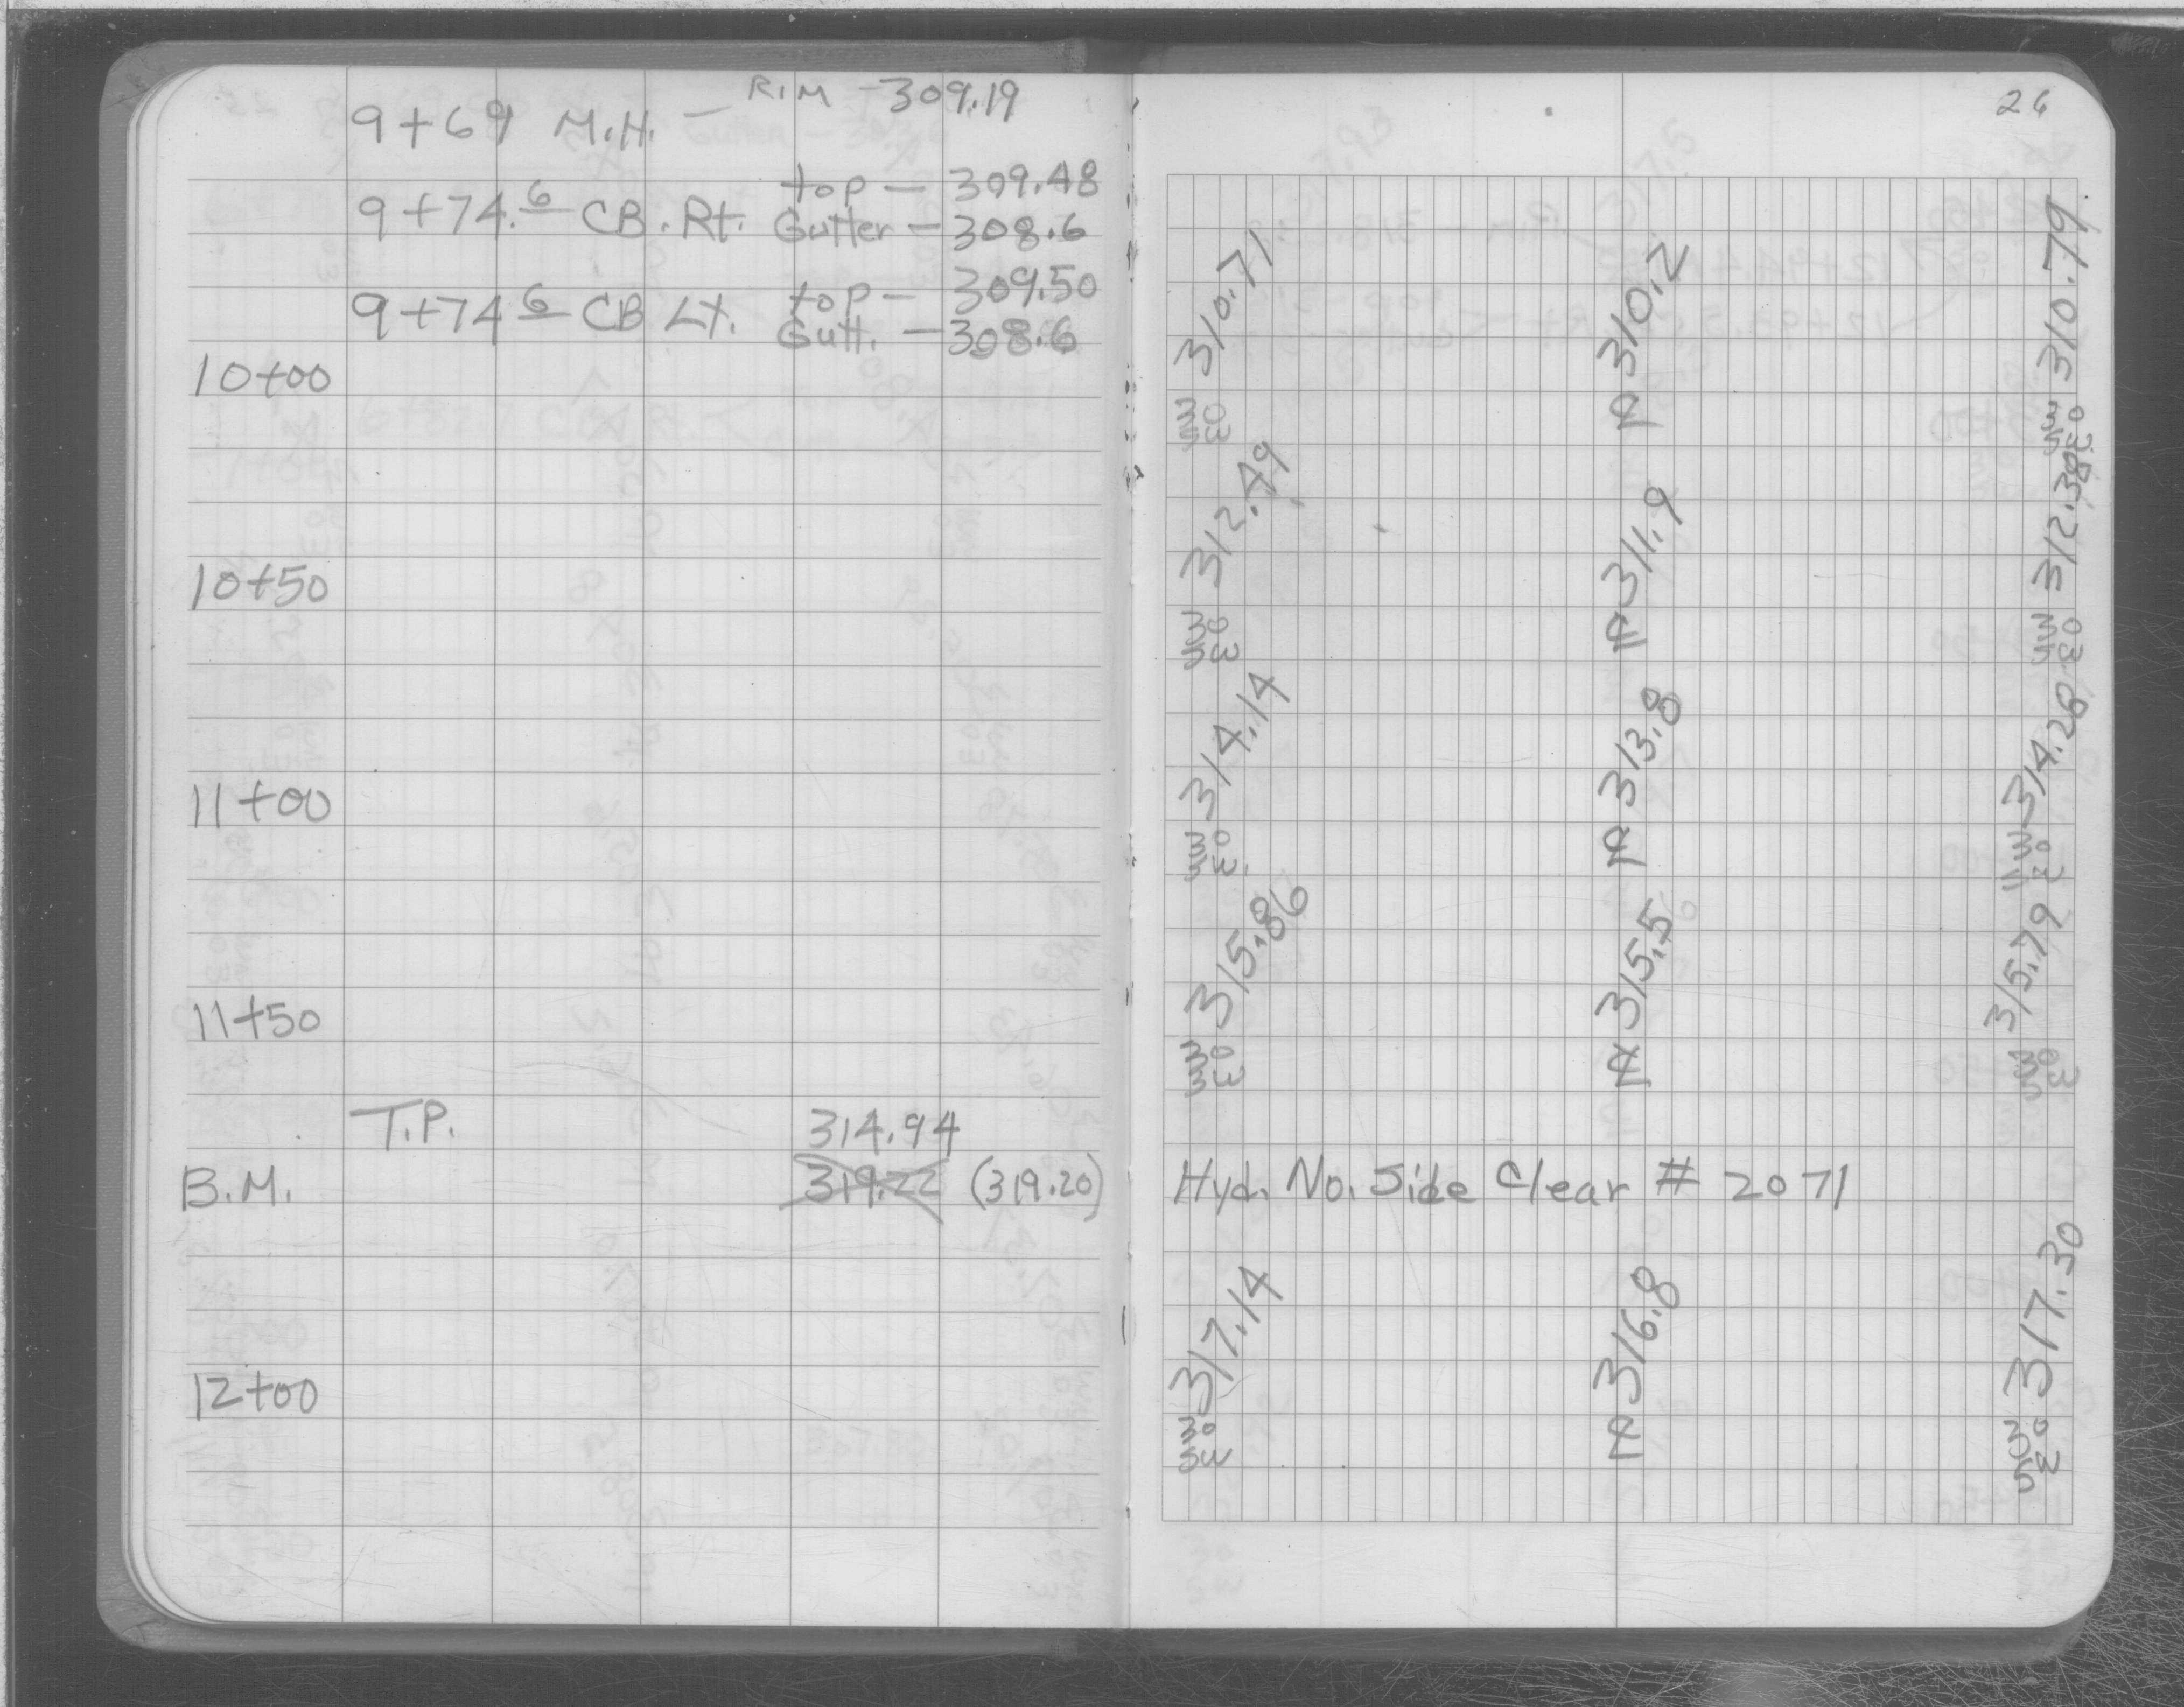 9+69 M.H. — RIM - 309.19
9+74.6 CB. Rt. top — 309.48
Gutter — 308.6
9+74 6 CB Lt. top — 309.50
Gutt. — 308.6
10+00
10+50
11+00
11+50
T.P. 314.94
B.M. 319.22 (319.20)
12+00
26
310.71 310.2 310.79
312.49 311.9 312.38
314.14 313.8 314.28
315.86 315.5 315.79
Hyd. No. Side Clear # 2071
317.14 316.8 317.30